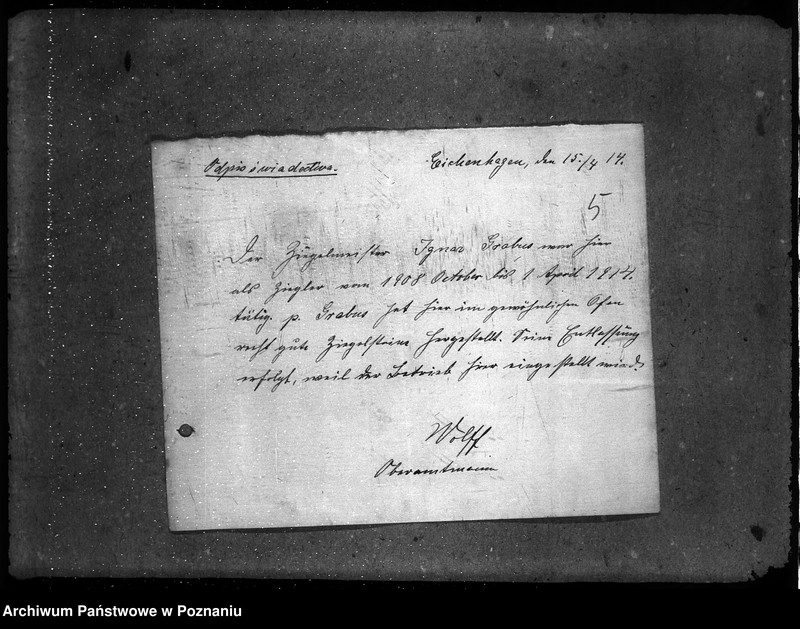 Odpis świadectwa.
Eichenhagen, den 15./4 14.
5
Der Ziegelmeister Ignaz Grabus war hier
als Ziegler vom 1908 October bis 1. April 1914.
tätig. p. Grabus hat hier im gewöhnlichen Ofen
recht gute Ziegelsteine hergestellt. Seine Entlassung
erfolgt, weil der Betrieb hier eingestellt wird.
Wolff
Oberamtmann
Archiwum Państwowe w Poznaniu